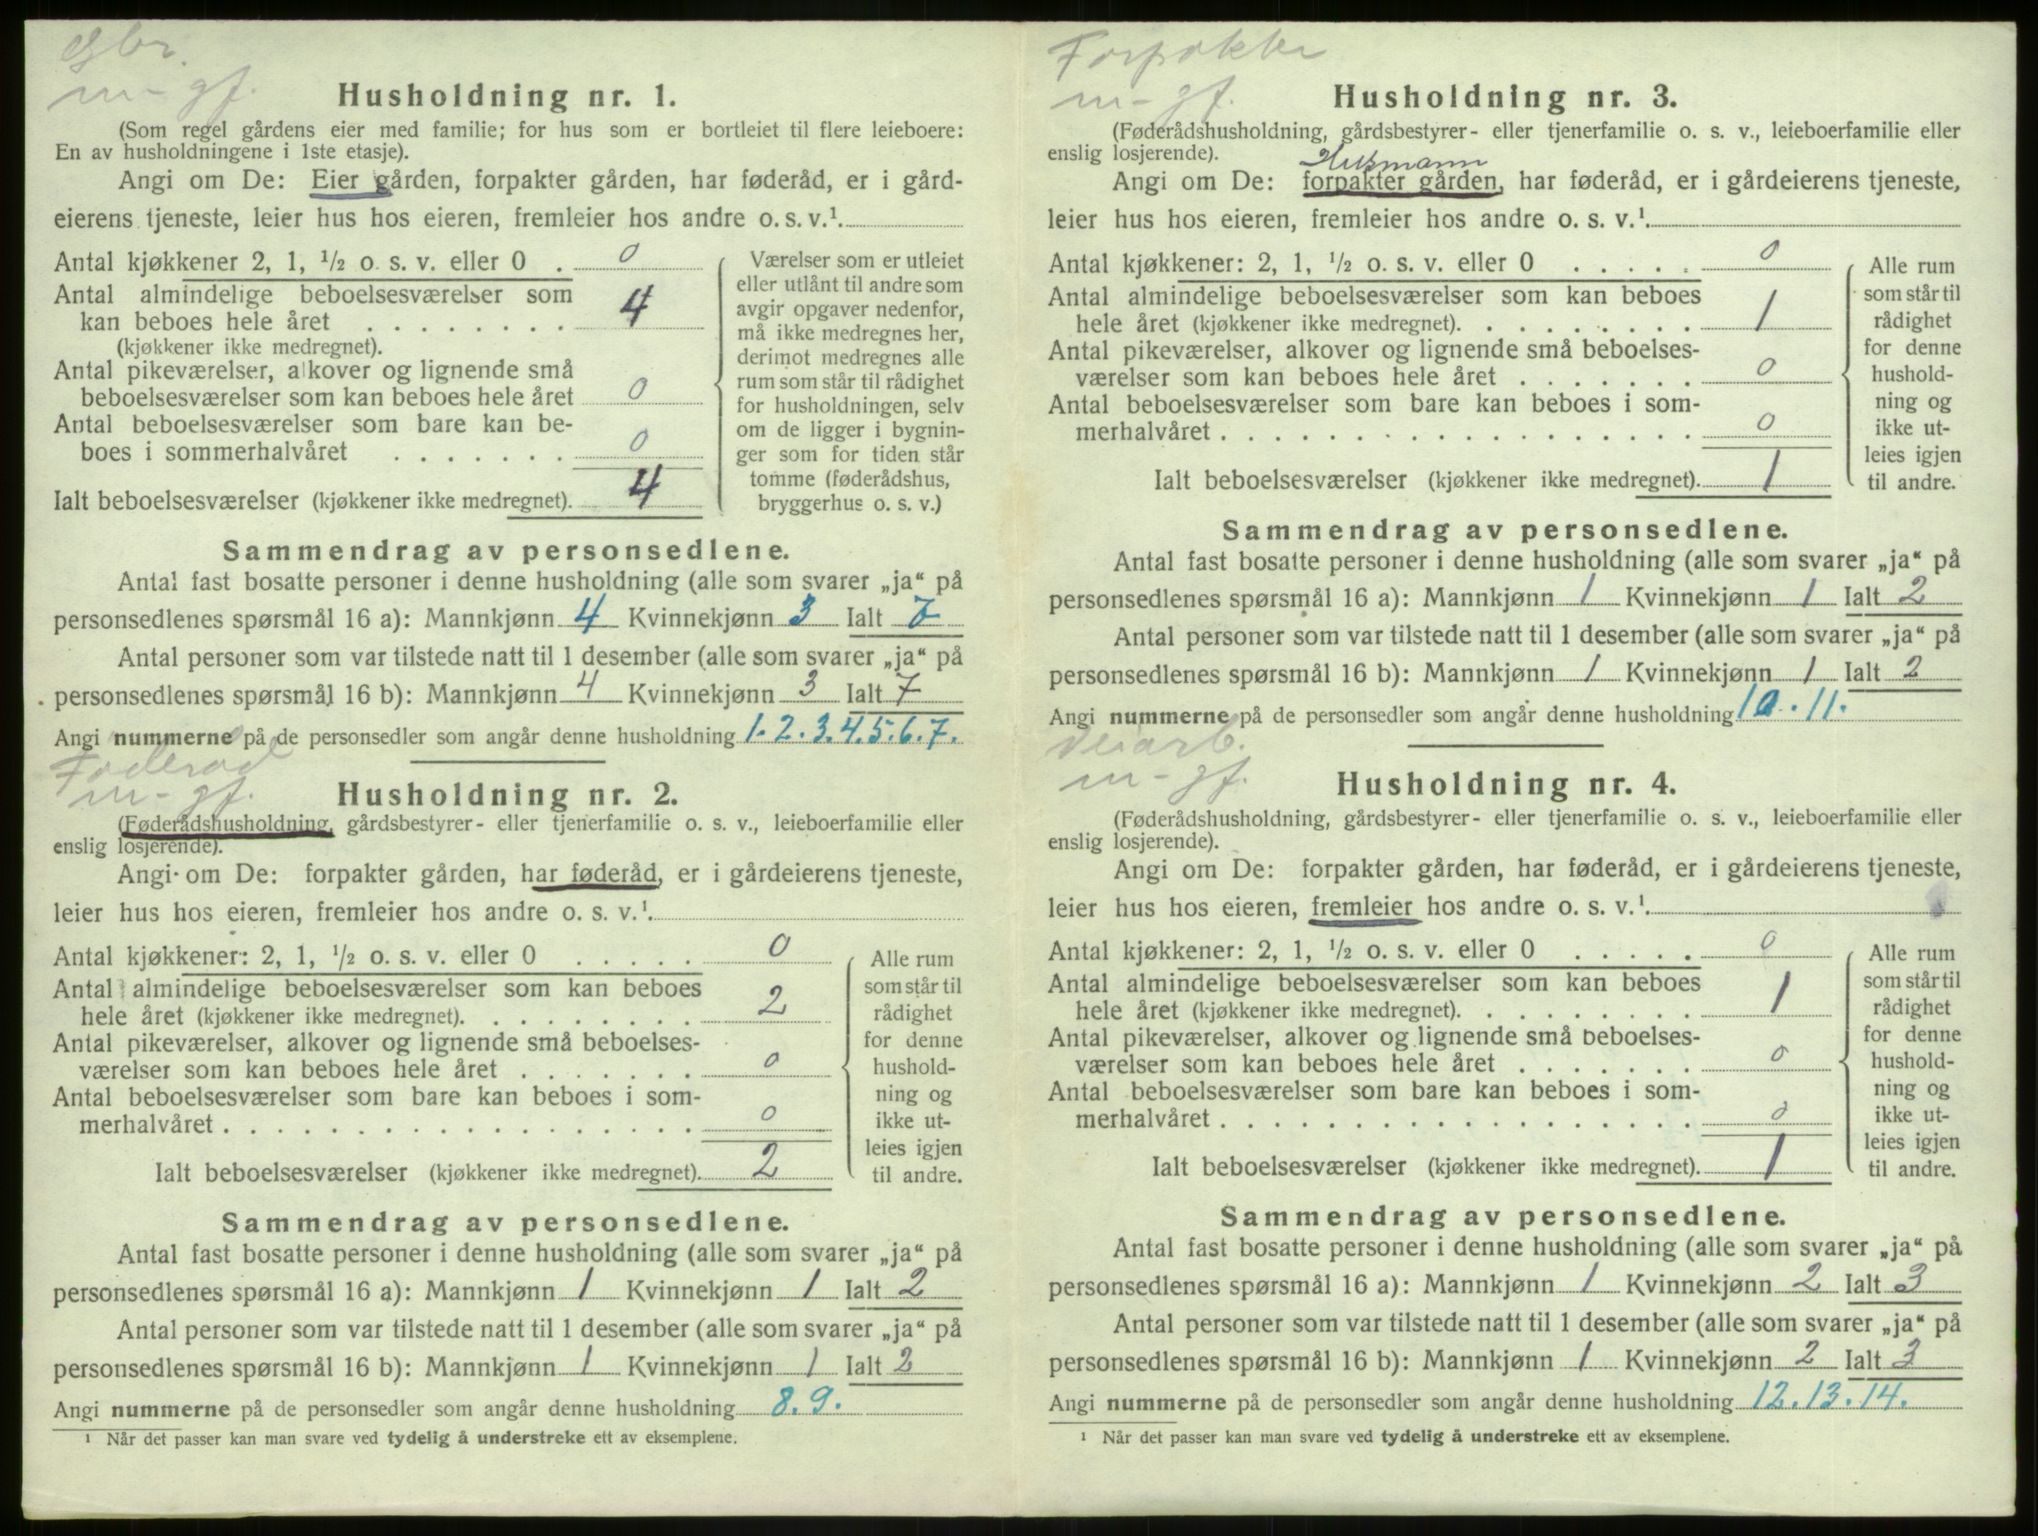 Gbr.
m - gf.
Husholdning nr. 1.
(Som regel gårdens eier med familie; for hus som er bortleiet til flere leieboere:
En av husholdningene i 1ste etasje).
Angi om De: Eier gården, forpakter gården, har føderåd, er i gård-
eierens tjeneste, leier hus hos eieren, fremleier hos andre o. s. v.¹
Antal kjøkkener 2, 1, ½ o. s. v. eller 0 . 0
Antal almindelige beboelsesværelser som
kan beboes hele året . . . . . . . . 4
(kjøkkener ikke medregnet).
Antal pikeværelser, alkover og lignende små
beboelsesværelser som kan beboes hele året 0
Antal beboelsesværelser som bare kan be-
boes i sommerhalvåret . . . . . . . 0
Ialt beboelsesværelser (kjøkkener ikke medregnet). 4
Værelser som er utleiet
eller utlånt til andre som
avgir opgaver nedenfor,
må ikke medregnes her,
derimot medregnes alle
rum som står til rådighet
for husholdningen, selv
om de ligger i bygnin-
ger som for tiden står
tomme (føderådshus,
bryggerhus o. s. v.)
Sammendrag av personsedlene.
Antal fast bosatte personer i denne husholdning (alle som svarer „ja“ på
personsedlenes spørsmål 16 a): Mannkjønn 4 Kvinnekjønn 3 Ialt 7
Antal personer som var tilstede natt til 1 desember (alle som svarer „ja“ på
personsedlenes spørsmål 16 b): Mannkjønn 4 Kvinnekjønn 3 Ialt 7
Angi nummerne på de personsedler som angår denne husholdning 1. 2. 3. 4. 5. 6. 7.
Føderåd
m - gf.
Husholdning nr. 2.
(Føderådshusholdning, gårdsbestyrer- eller tjenerfamilie o. s. v., leieboerfamilie eller
enslig losjerende).
Angi om De: forpakter gården, har føderåd, er i gårdeierens tjeneste,
leier hus hos eieren, fremleier hos andre o. s. v.¹
Antal kjøkkener: 2, 1, ½ o. s. v. eller 0 . . . . . 0
Antal almindelige beboelsesværelser som kan beboes
hele året (kjøkkener ikke medregnet). . . . . . . . . 2
Antal pikeværelser, alkover og lignende små beboelses-
værelser som kan beboes hele året . . . . . . . 0
Antal beboelsesværelser som bare kan beboes i som-
merhalvåret . . . . . . . . . . . . . . . . . . 0
Ialt beboelsesværelser (kjøkkener ikke medregnet). 2
Alle rum
som står til
rådighet
for denne
hushold-
ning og
ikke ut-
leies igjen
til andre.
Sammendrag av personsedlene.
Antal fast bosatte personer i denne husholdning (alle som svarer „ja“ på
personsedlenes spørsmål 16 a): Mannkjønn 1 Kvinnekjønn 1 Ialt 2
Antal personer som var tilstede natt til 1 desember (alle som svarer „ja“ på
personsedlenes spørsmål 16 b): Mannkjønn 1 Kvinnekjønn 1 Ialt 2
Angi nummerne på de personsedler som angår denne husholdning 8. 9.
¹ Når det passer kan man svare ved tydelig å understreke ett av eksemplene.
Forpakter
m - gf.
Husholdning nr. 3.
(Føderådshusholdning, gårdsbestyrer- eller tjenerfamilie o. s. v., leieboerfamilie eller
enslig losjerende).
Husmann
Angi om De: forpakter gården, har føderåd, er i gårdeierens tjeneste,
leier hus hos eieren, fremleier hos andre o. s. v.¹
Antal kjøkkener: 2, 1, ½ o. s. v. eller 0 . . . . . 0
Antal almindelige beboelsesværelser som kan beboes
hele året (kjøkkener ikke medregnet). . . . . . . . . 1
Antal pikeværelser, alkover og lignende små beboelses-
værelser som kan beboes hele året . . . . . . . 0
Antal beboelsesværelser som bare kan beboes i som-
merhalvåret . . . . . . . . . . . . . . . . . . 0
Ialt beboelsesværelser (kjøkkener ikke medregnet). 1
Alle rum
som står til
rådighet
for denne
hushold-
ning og
ikke ut-
leies igjen
til andre.
Sammendrag av personsedlene.
Antal fast bosatte personer i denne husholdning (alle som svarer „ja“ på
personsedlenes spørsmål 16 a): Mannkjønn 1 Kvinnekjønn 1 Ialt 2
Antal personer som var tilstede natt til 1 desember (alle som svarer „ja“ på
personsedlenes spørsmål 16 b): Mannkjønn 1 Kvinnekjønn 1 Ialt 2
Angi nummerne på de personsedler som angår denne husholdning 10. 11.
m - gf.
Husholdning nr. 4.
(Føderådshusholdning, gårdsbestyrer- eller tjenerfamilie o. s. v., leieboerfamilie eller
enslig losjerende).
Angi om De: forpakter gården, har føderåd, er i gårdeierens tjeneste,
leier hus hos eieren, fremleier hos andre o. s. v.¹
Antal kjøkkener: 2, 1, ½ o. s. v. eller 0 . . . . . 0
Antal almindelige beboelsesværelser som kan beboes
hele året (kjøkkener ikke medregnet). . . . . . . . . 1
Antal pikeværelser, alkover og lignende små beboelses-
værelser som kan beboes hele året . . . . . . . 0
Antal beboelsesværelser som bare kan beboes i som-
merhalvåret . . . . . . . . . . . . . . . . . . 0
Ialt beboelsesværelser (kjøkkener ikke medregnet). 1
Alle rum
som står til
rådighet
for denne
hushold-
ning og
ikke ut-
leies igjen
til andre.
Sammendrag av personsedlene.
Antal fast bosatte personer i denne husholdning (alle som svarer „ja“ på
personsedlenes spørsmål 16 a): Mannkjønn 1 Kvinnekjønn 2 Ialt 3
Antal personer som var tilstede natt til 1 desember (alle som svarer „ja“ på
personsedlenes spørsmål 16 b): Mannkjønn 1 Kvinnekjønn 2 Ialt 3
Angi nummerne på de personsedler som angår denne husholdning 12. 13. 14.
¹ Når det passer kan man svare ved tydelig å understreke ett av eksemplene.